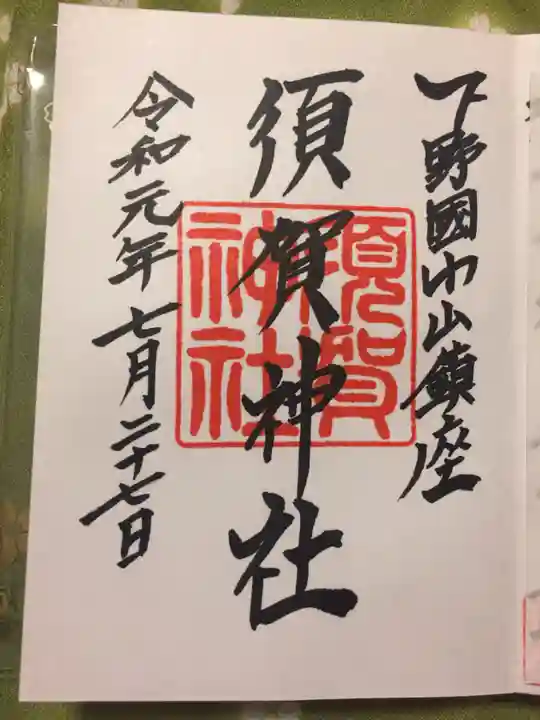 下野國小山鎮座
須賀神社
須賀神社
令和元年七月二十七日